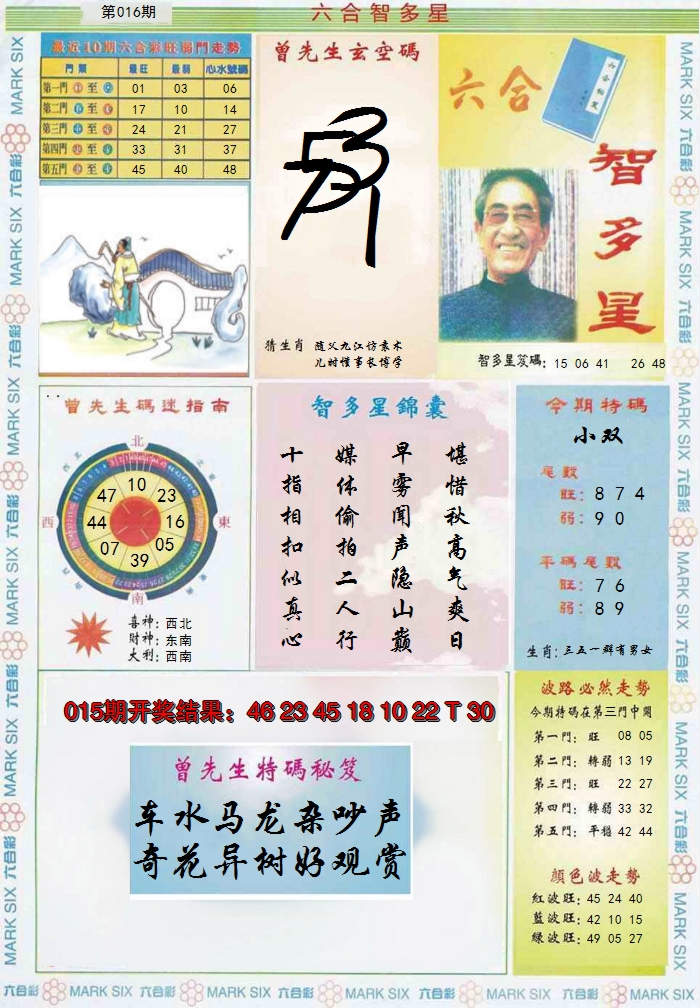 第016期
六合智多星
最近10期六合彩旺弱門走勢
門票 最旺 最弱 心水號碼
第一門 至 01 03 06
第二門 至 17 10 14
第三門 至 24 21 27
第四門 至 33 31 37
第五門 至 45 40 48
曾先生玄空碼
猜生肖 随父九江访素术
儿时懂事长博学
六合
智多星
智多星笈碼: 15 06 41 26 48
曾先生碼迷指南
北
西
東
南
10
23
16
05
39
07
44
47
喜神: 西北
财神: 东南
大利: 西南
智多星錦囊
堪惜秋高气爽日
早雾闻声隐山巅
媒体偷拍二人行
十指相扣似真心
今期特碼
小双
尾数
旺: 8 7 4
弱: 9 0
平碼尾数
旺: 7 6
弱: 8 9
生肖: 三五一群有男女
015期开奖结果: 46 23 45 18 10 22 T 30
曾先生特碼秘笈
车水马龙杂吵声
奇花异树好观赏
波路必然走勢
今期特碼在第三門中開
第一門: 旺 08 05
第二門: 轉弱 13 19
第三門: 旺 22 27
第四門: 轉弱 33 32
第五門: 平穩 42 44
顏色波走勢
紅波旺: 45 24 40
藍波旺: 42 10 15
绿波旺: 49 05 27
六合彩 MARK SIX